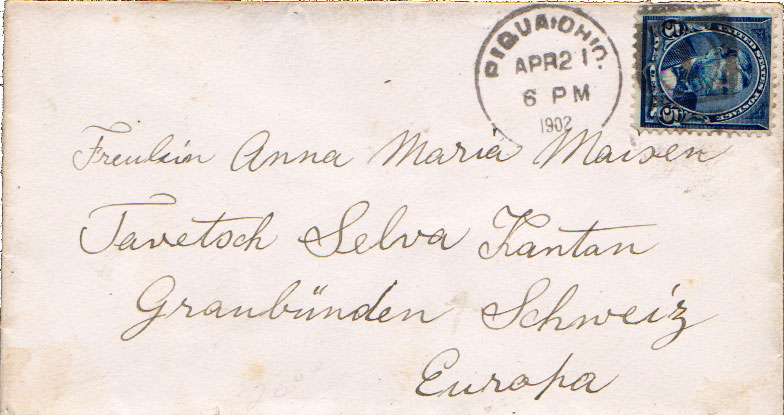 PIQUA, OHIO.
APR 21
6 PM
1902
UNITED STATES POSTAGE
5 5
Freulein Anna Maria Maisen
Tavetsch Selva Kantan
Graubünden Schweiz
Europa